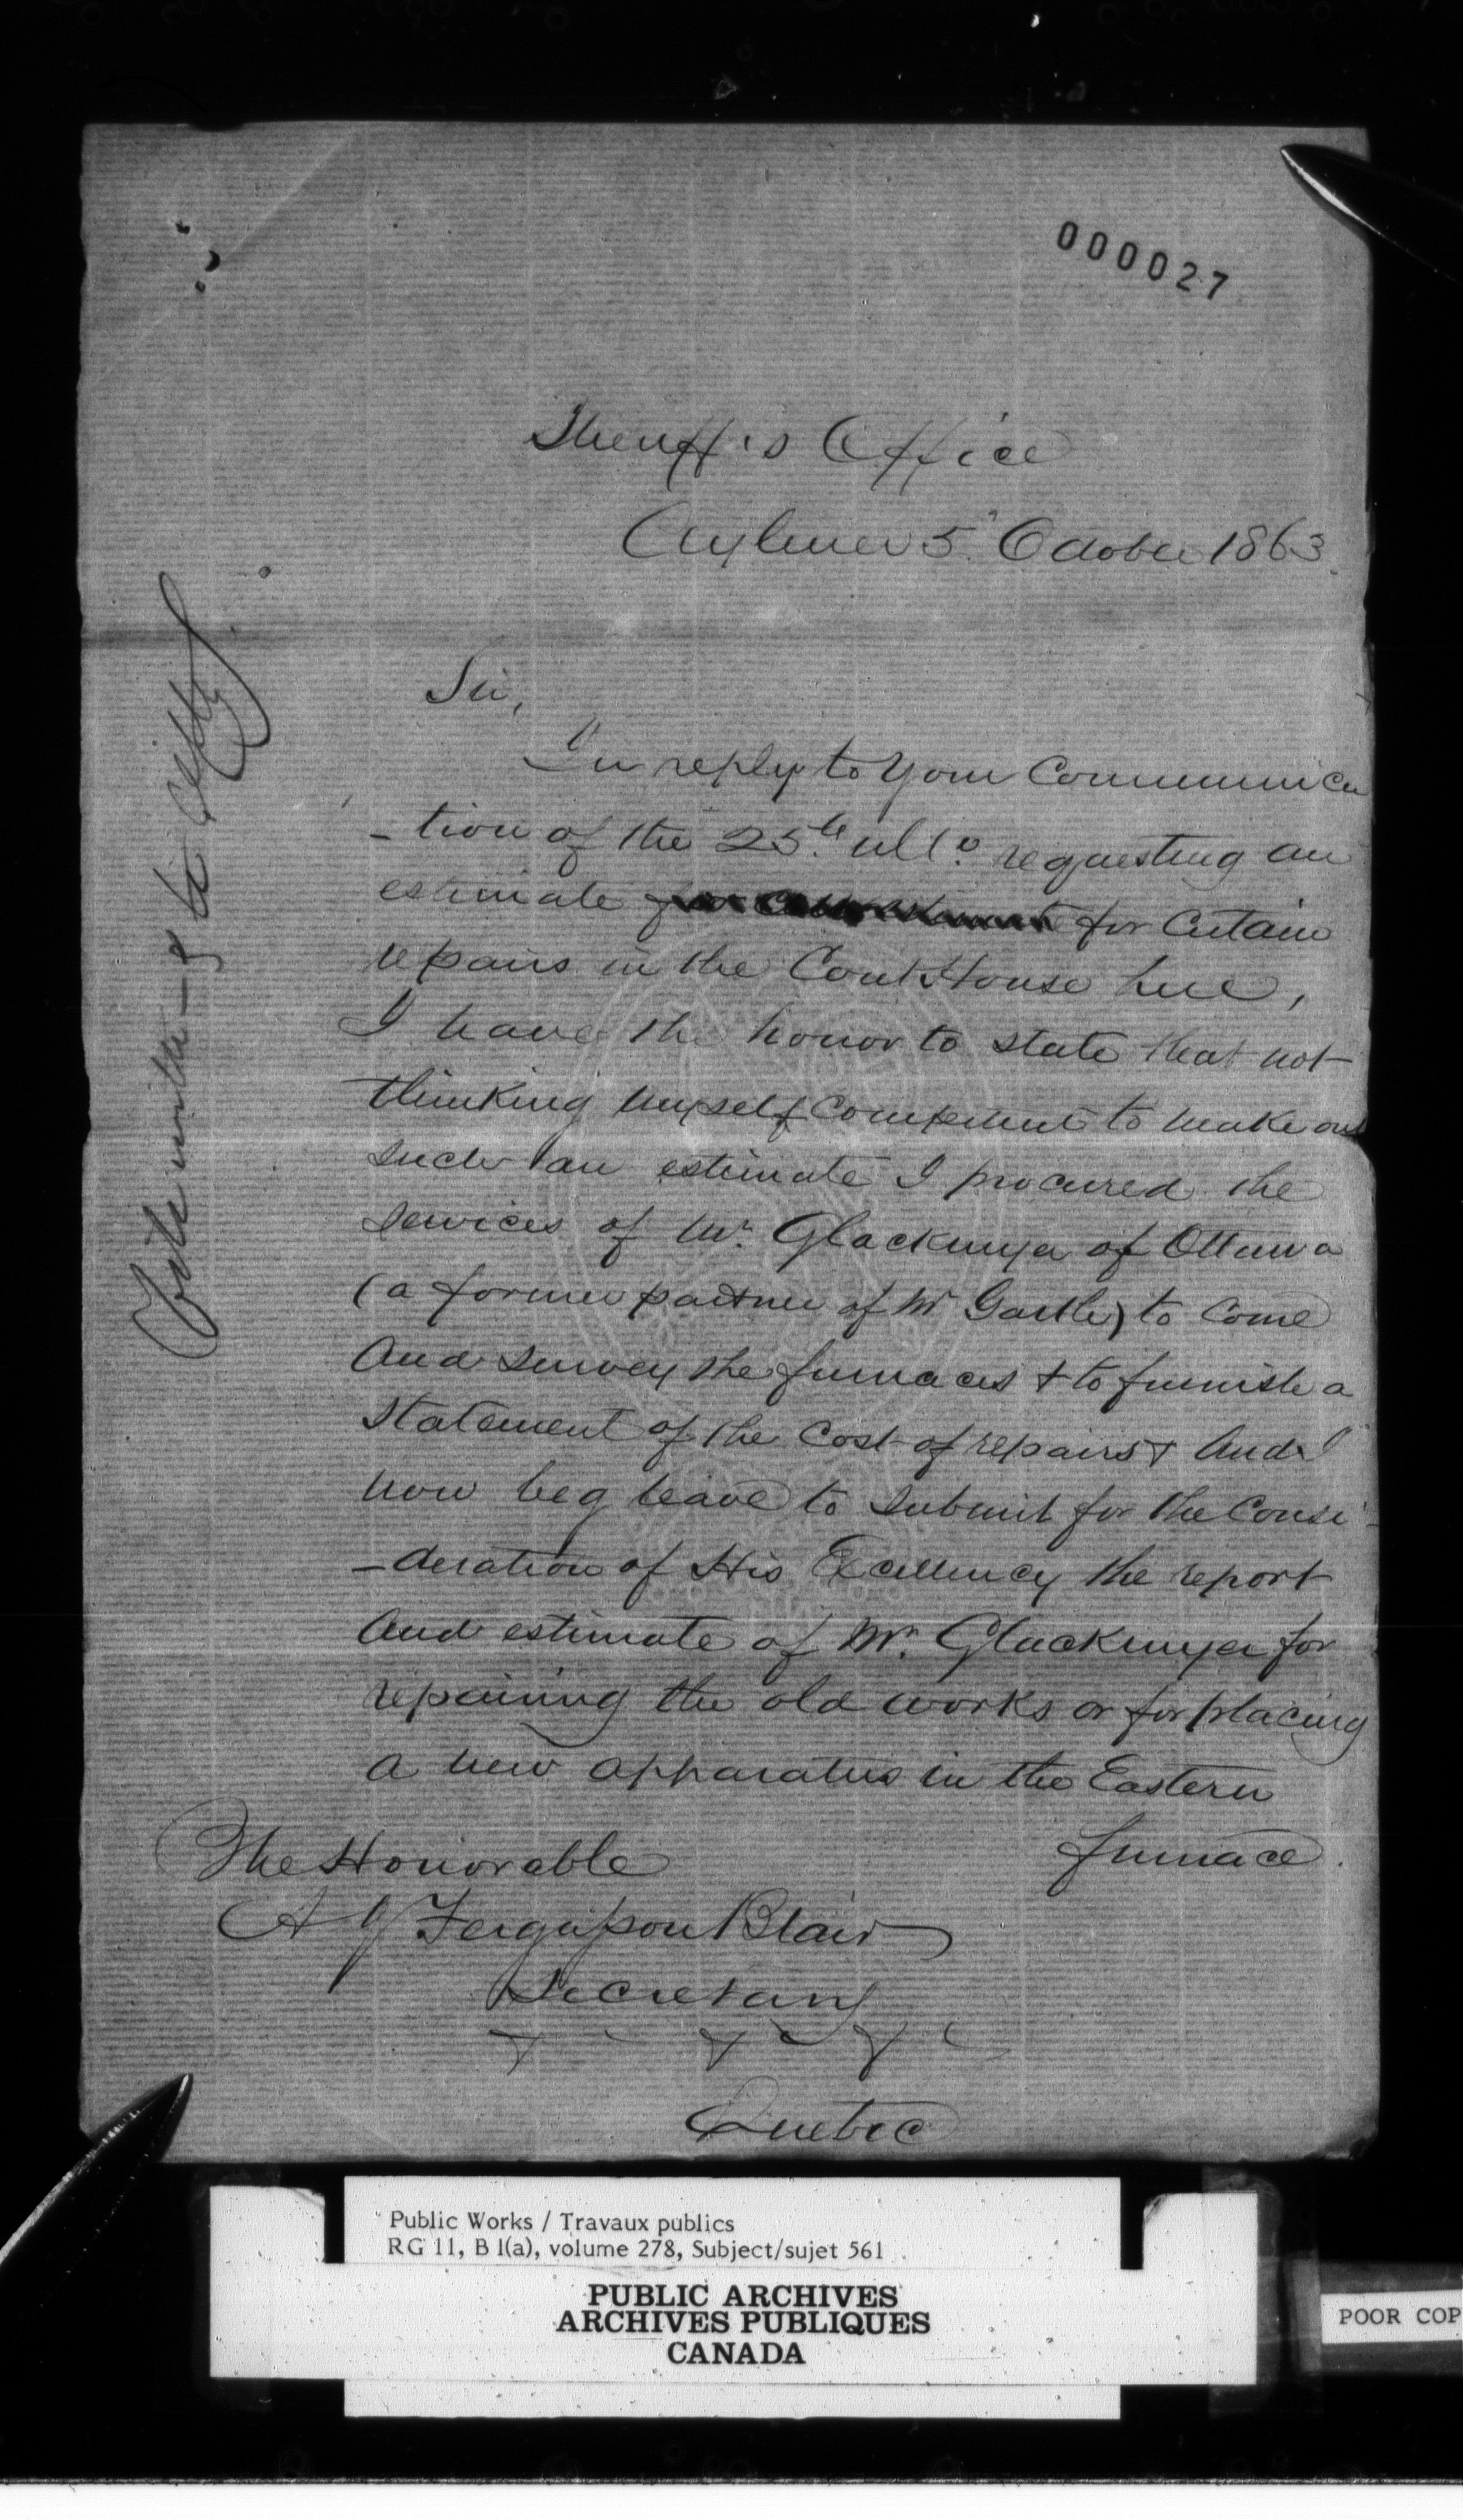 000027
Sheriff's Office
Aylmer 5th October 1863
Sir,
In reply to your Communica
-tion of the 25th ulto. requesting an
estimate for Certain
repairs in the Court House here,
I have the honor to state that not
thinking myself Competent to make out
such an estimate I procured the
services of Mr. Glackmyer of Ottawa
(a former partner of Mr Garth) to Come
And survey the furnaces & to furnish a
Statement of the Cost of repairs & And I
now beg leave to submit for the Consi-
-deration of His Excellency the report
And estimate of Mr. Glackmyer for
repairing the old works or for placing
a new apparatus in the Eastern
furnace.
The Honorable
A J Fergusson Blair
Secretary
& & &c
Quebec
Public Works / Travaux publics
RG 11, B 1(a), volume 278, Subject/sujet 561
PUBLIC ARCHIVES
ARCHIVES PUBLIQUES
CANADA
POOR COP